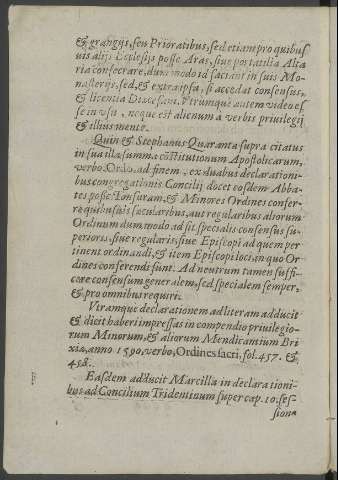 & grangijs, seu Prioratibus, sed etiam pro quibus
uis alijs Ecclesijs posse Aras, siue portatilia Alta
ria consecrare, dummodo id faciant in suis Mo-
nasterijs, sed, & extra ipsa, si accedat consensus,
& licentia Diœcesani. Vtrumque autem video es
se in vsu, neque est alienum a verbis priuilegij
& illius mente.
Quin & Stephanus Quaranta supra citatus
in sua illa summa cōstitutionum Apostolicarum,
verbo. Ordo. ad finem, ex duabus declarationi-
bus congregationis Concilij docet eosdem Abba-
tes posse Tonsuram, & Minores Ordines confer-
re quibusuis sæcularibus, aut regularibus aliorum
Ordinum dummodo adsit specialis consensus su-
perioris, siue regularis, siue Episcopi ad quem per
tinent ordinandi, & item Episcopi loci, in quo Or
dines conferendi sunt. Ad neutrum tamen suffi-
cere consensum generalem, sed specialem semper,
& pro omnibus requiri.
Vtramque declarationem ad literam adducit
& dicit haberi impressas in compendio priuilegio-
rum Minorum, & aliorum Mendicantium Bri
xiæ, anno 1590. verbo, Ordines sacri, fol. 457. &
458.
Easdem adducit Marcilla in declarationi-
bus ad Concilium Tridentinum super cap. 10. ses-
sione